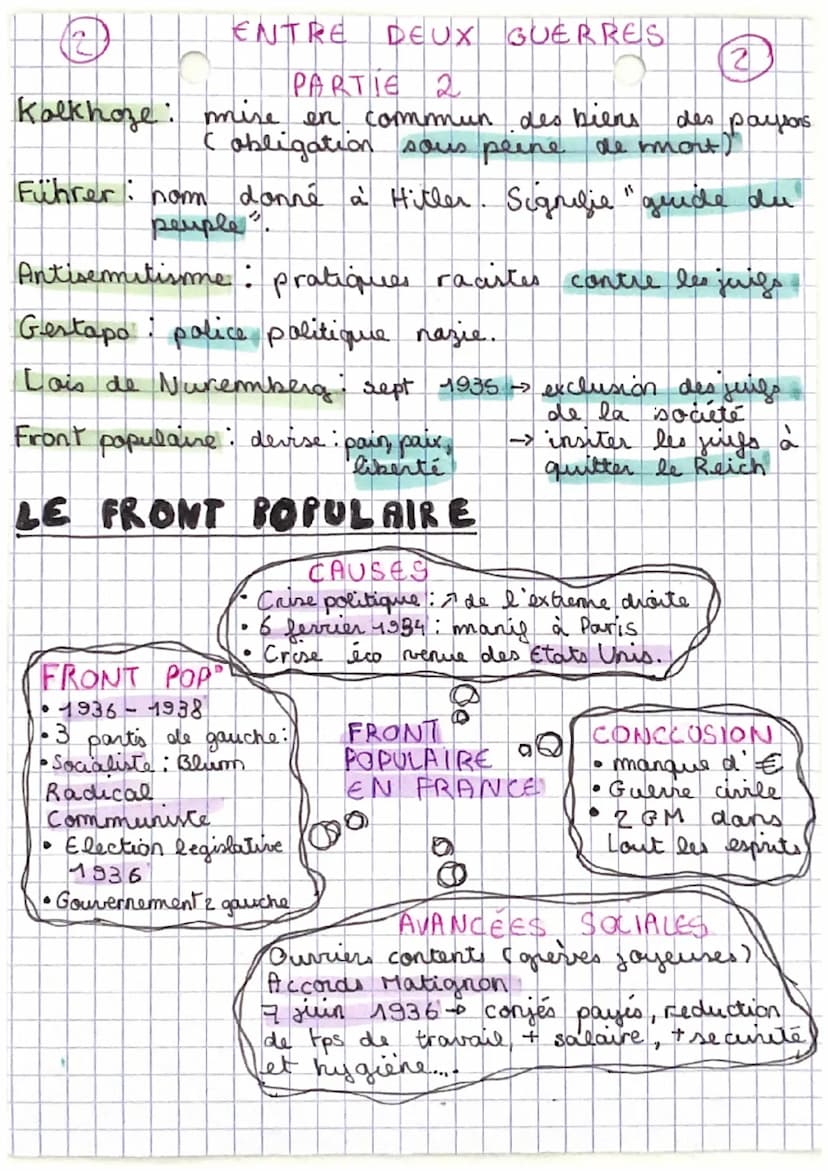 2 ENTRE DEUX GUERRES 2
PARTIE 2
Kolkhoze : mise en commun des biens des paysans
(obligation sous peine de mort)
Führer : nom donné à Hitler. Signifie "guide du
peuple".
Antisemitisme : pratiques racistes contre les juifs
Gestapo : police politique nazie.
Lois de Nuremberg : sept 1935 → exclusion des juifs
de la société
Front populaire : devise : pain, paix,
liberté
→ insiter les juifs à
quitter le Reich
LE FRONT POPULAIRE
CAUSES
• Crise politique : ↗ de l'extreme droite
• 6 fevrier 1934 : manif à Paris
• Crise éco venue des Etats Unis.
FRONT POP°
• 1936 - 1938
• 3 partis de gauche :
• Socialiste : Blum
Radical
Communiste
• Election legislative
1936
• Gouvernement 2 gauche
FRONT
POPULAIRE
EN FRANCE
CONCLUSION
• manque d'€
• Guerre civile
• 2 GM dans
tout les esprits
AVANCÉES SOCIALES
Ouvriers contents (grèves joyeuses)
Accords Matignon
7 juin 1936 → conjés payés, reduction
de tps de travail, + salaire, + securité
et hygiène....